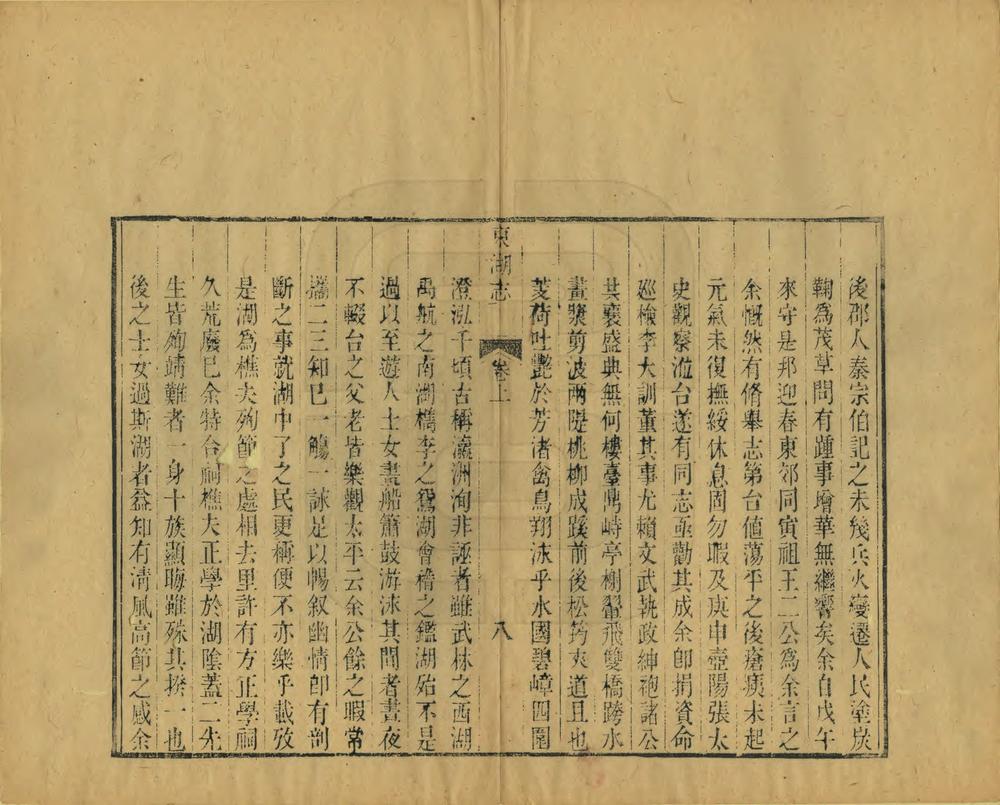 後郡人秦宗伯記之未幾兵火變遷人民塗炭
鞠為茂草問有踵事增華無繼響矣余自戊午
來守是邦迎春東郊同寅祖王二公為余言之
余慨然有脩舉志第台値蕩平之後瘡痍未起
元氣未復撫綏休息固勿暇及庚申壺陽張太
史觀察涖台遂有同志亟勸其成余卽捐資命
廵檢李大訓董其事尤賴文武執政紳袍諸公
共襄盛典無何樓臺鼎峙亭榭翬飛雙橋跨水
畫漿剪波兩隄桃柳成蹊前後松筠夾道且也
芰荷吐艷於芳渚禽鳥翔泳乎水國碧嶂四圍
東湖志
卷上
八
澄泓千頃古稱瀛洲洵非誣者雖武林之西湖
禹航之南湖檇李之鴛湖會稽之鑑湖殆不是
過以至遊人士女畫船簫鼓游泳其間者晝夜
不輟台之父老皆樂觀太平云余公餘之暇常
攜二三知巳一觴一詠足以暢叙幽情卽有剖
斷之事就湖中了之民更稱便不亦樂乎載攷
是湖為樵夫殉節之處相去里許有方正學祠
久荒廢巳余特合祠樵夫正學於湖陰蓋二先
生皆殉靖難者一身十族顯晦雖殊其揆一也
後之士女過斯湖者益知有淸風高節之感余